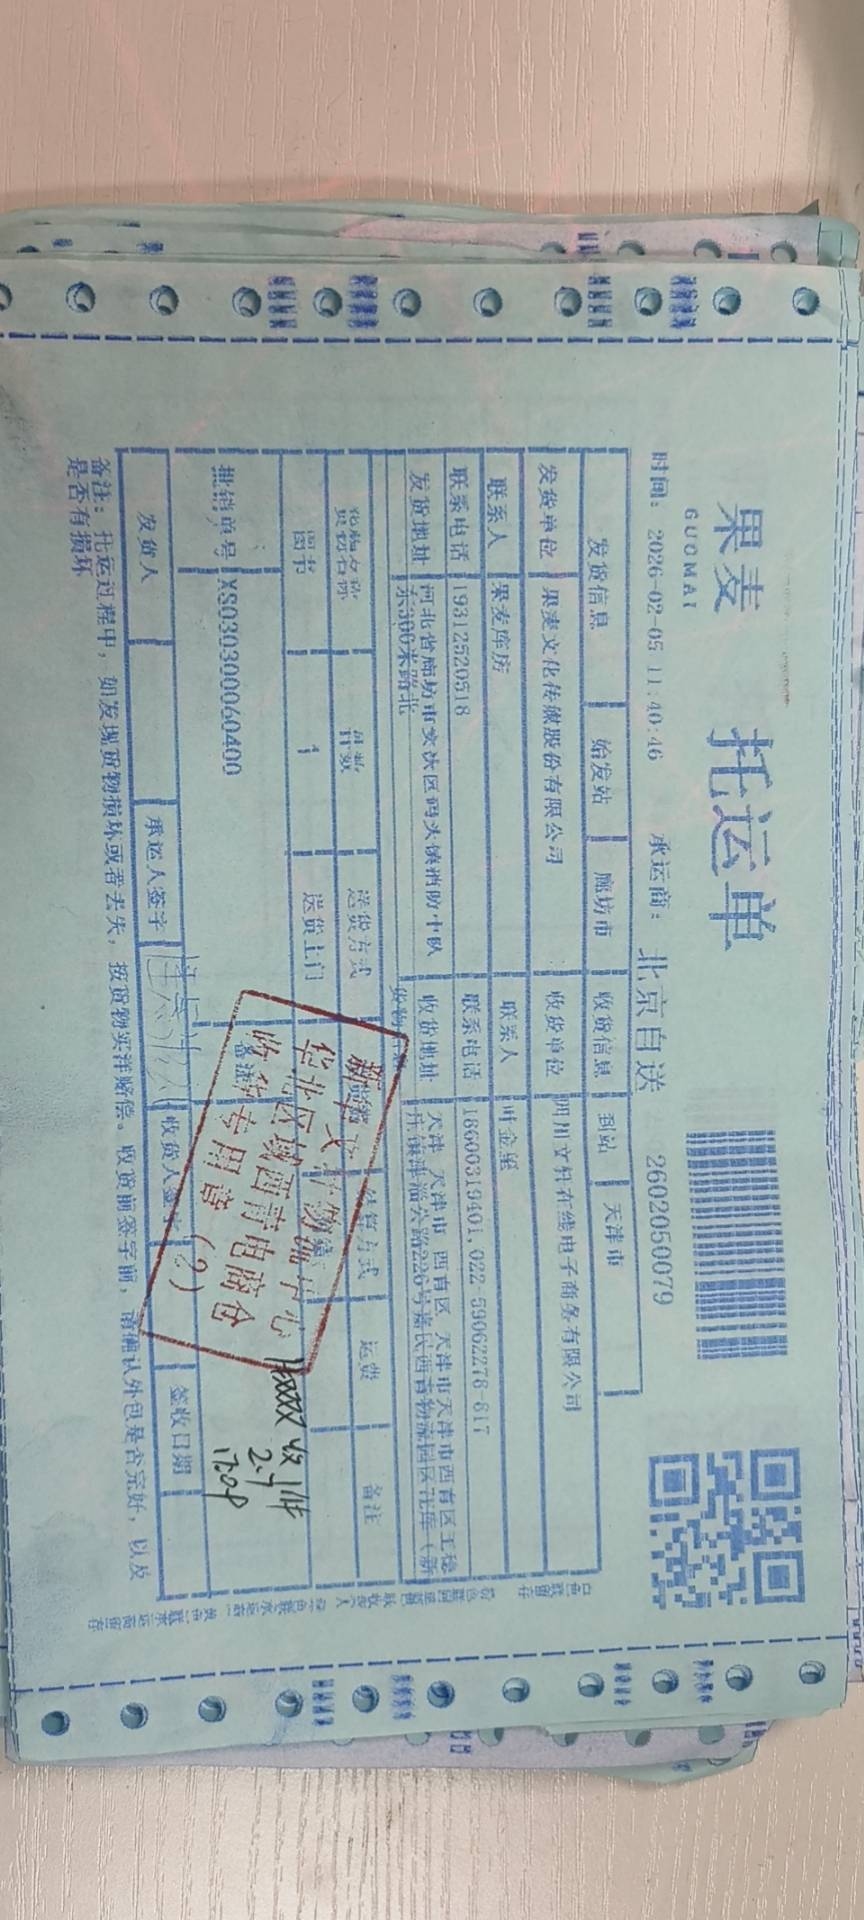 果麦
GUOMAI
托运单
时间： 2026-02-05 11:40:46
承运商： 北京自送
2602050079
发货信息 始发站 廊坊市 收货信息 到站 天津市
发货单位 果麦文化传媒股份有限公司 收货单位 四川文轩在线电子商务有限公司
联系人 果麦库房 联系人 叶金玺
联系电话 19312520518 联系电话 18600319401,022-59062278-817
发货地址 河北省廊坊市安次区码头镇消防中队
东300米路北
收货地址 天津 天津市 西青区 天津市天津市西青区王稳
庄镇津淄公路226号嘉民西青物流园区 库（新
货物名称 件数 送货方式 结算方式 运费 备注
图书 1 送货上门
批销单号 XS030300060400 备注
发货人 承运人签字 收货人签字 签收日期
新华文轩物流中心
华北区域西青电商仓
收货专用章
(2)
收1件
2.7
17:08
备注：托运过程中，如发现货物损坏或者丢失，按货物实洋赔偿。收货前签字前，请确认外包是否完好，以及
是否有损坏